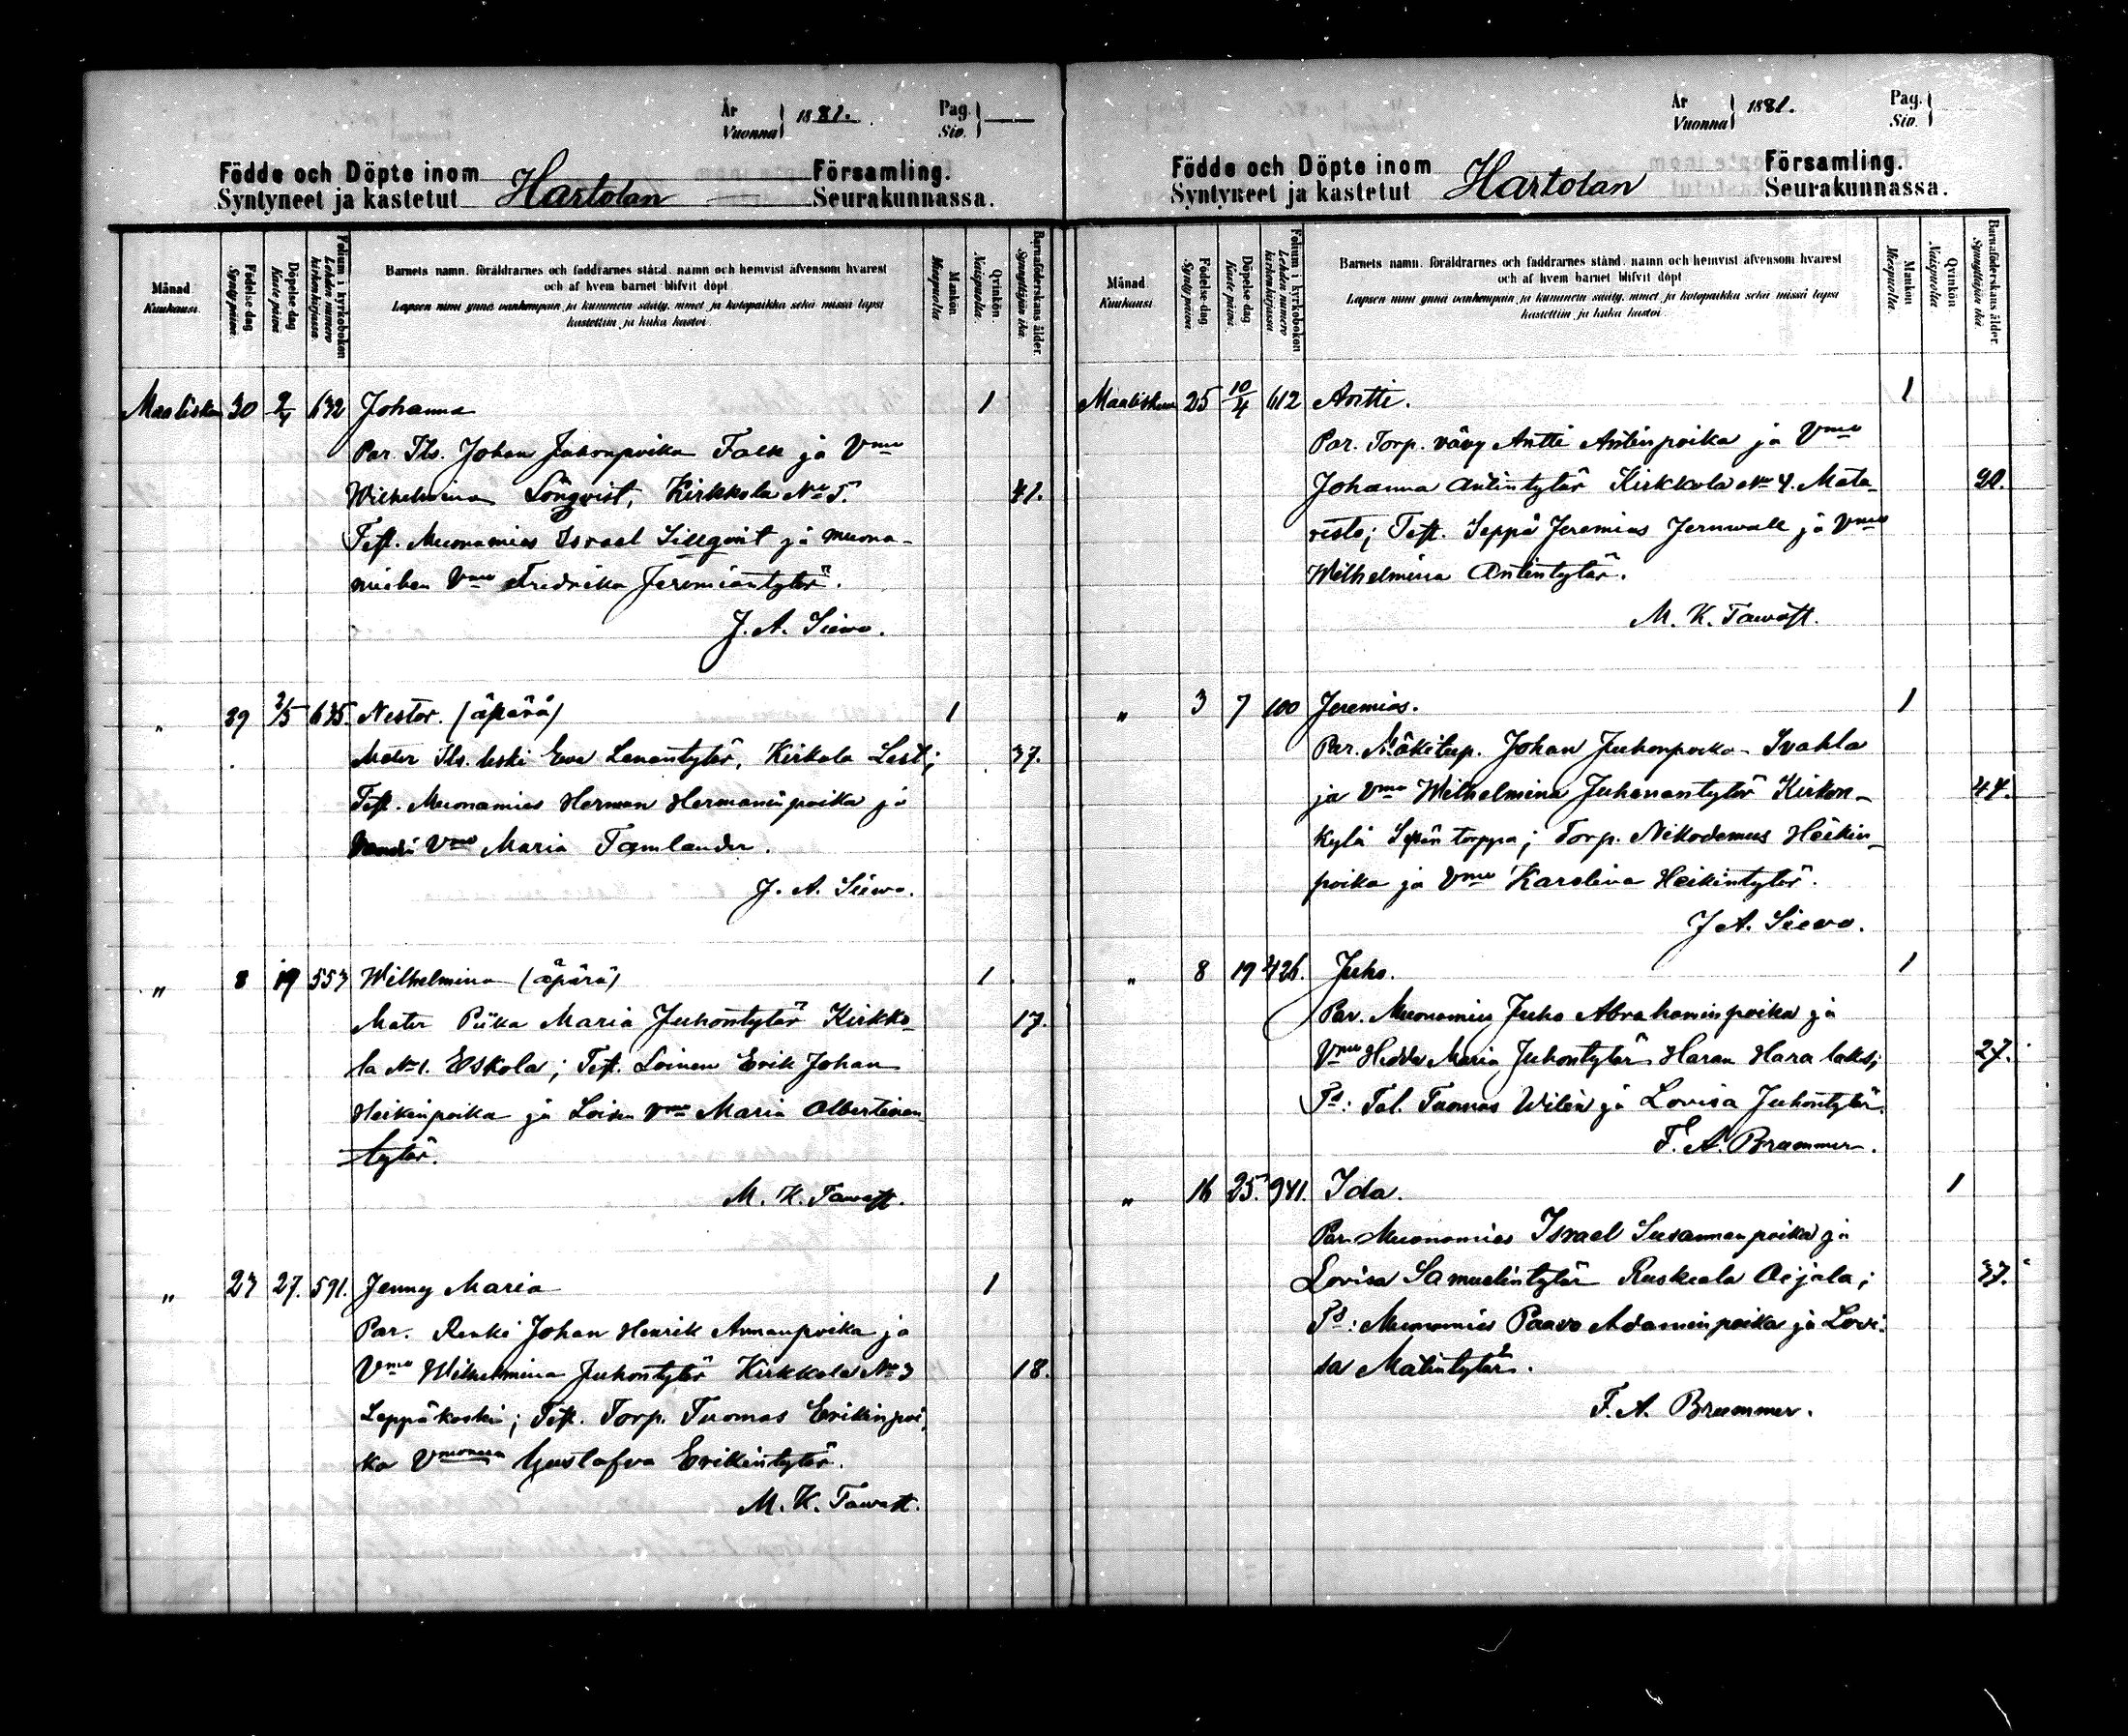 År
Vuonna 1881. Pag.
Siv.
Födde och Döpte inom Församling.
Syntyneet ja kastetut Hartolan Seurakunnassa.
Månad Kuukausi. Födelse dag Synty päivä. Döpelse dag Kaste päivä Folium i kyrkoboken Lehden numero kirkonkirjassa
Barnets namn, föräldrarnes och faddrarnes stånd, namn och hemvist äfvensom hvarest
och af hvem barnet blifvit döpt
Lapsen nimi ynnä vanhempain ja kummein sääty, nimet ja kotopaikka sekä missä lapsi
kastettiin ja kuka kastoi
Mankön Miespuolia. Qvinkön. Naispuolia. Barnaföderskans ålder. Synnyttäjän ikä.
Maalisk. 30 2/4 632 Johanna 1
Par. Its. Johan Juhonpoika Falk ja Vmo
Wilhelmina Lönqvist, Kirkkola No 5. 41.
Test. Muonamies Israel Lillqvist ja muona-
miehen Vmo Fredrika Jeremiantytär.
J. A. Siewo.
" 29 2/5 635. Nestor. (äpärä) 1
Mater Its. leski Eva Lenantytär, Kirkola 37.
Test. Muonamies Herman Hermaninpoika ja
Vmo Maria Tamlander.
J. A. Siewo.
" 8 19 553 Wilhelmina (äpärä) 1
Mater Piika Maria Juhontytär Kirkko- 17.
la No 1. Eskola; Test. Loinen Erik Johan
Heikinpoika ja Loisen Vmo Maria Albertinan
tytär.
M. K. Tawast.
" 23 27. 591. Jenny Maria 1
Par. Renki Johan Henrik Annanpoika ja
Vmo Wilhelmina Juhontytär Kirkkola No 3 18.
Leppäkoski; Test. Torp. Tuomas Erikinpoi-
ka Gustafva Erikintytär.
M. K. Tawast.
År
Vuonna 1881. Pag.
Siv.
Födde och Döpte inom Församling.
Syntyneet ja kastetut Hartolan Seurakunnassa.
Månad Kuukausi. Födelse dag Synty päivä. Döpelse dag Kaste päivä. Folium i kyrkoboken Lehden numero kirkonkirjassa
Barnets namn, föräldrarnes och faddrarnes stånd, namn och hemvist äfvensom hvarest
och af hvem barnet blifvit döpt
Lapsen nimi ynnä vanhempain ja kummein sääty, nimet ja kotopaikka sekä missä lapsi
kastettiin ja kuka kastoi
Mankön Miespuolia. Qvinkön Naispuolia Barnaföderskans ålder. Synnyttäjän ikä.
Maalisk. 25 10/4 612 Antti. 1
Par. Torp. vävy Antti Antinpoika ja Vmo
Johanna Antintytär Kirkkola No 4. Mata-
risto; Test. Seppä Jeremias Jernwall ja Vmo
Wilhelmina Antintytär.
M. K. Tawast.
" 3 7 100 Jeremias. 1
Par. Mäkitup. Johan Juhonpoika Ivahla
ja Vmo Wilhelmina Juhanantytär Kirkon- 44.
kylä Sepän torppa; Torp. Nikodemus Heikin-
poika ja Vmo Karolina Heikintytär.
J A. Siewo.
" 8 19 426. Juho. 1
Par. Muonamies Juho Abrahaminpoika ja
Vmo Hedda Maria Juhontytär Haran 27.
Ts: Tal. Tuomas Wilén ja Lovisa Juhontytär.
F. A. Brummer.
" 16 25. 941. Ida. 1
Par. Muonamies Israel Susannanpoika ja
Lovisa Samuelintytär Ruskeala Aijala; 37.
Ts: Muonamies Paavo Adaminpoika ja Lovi-
sa Matintytär.
F. A. Brummer.